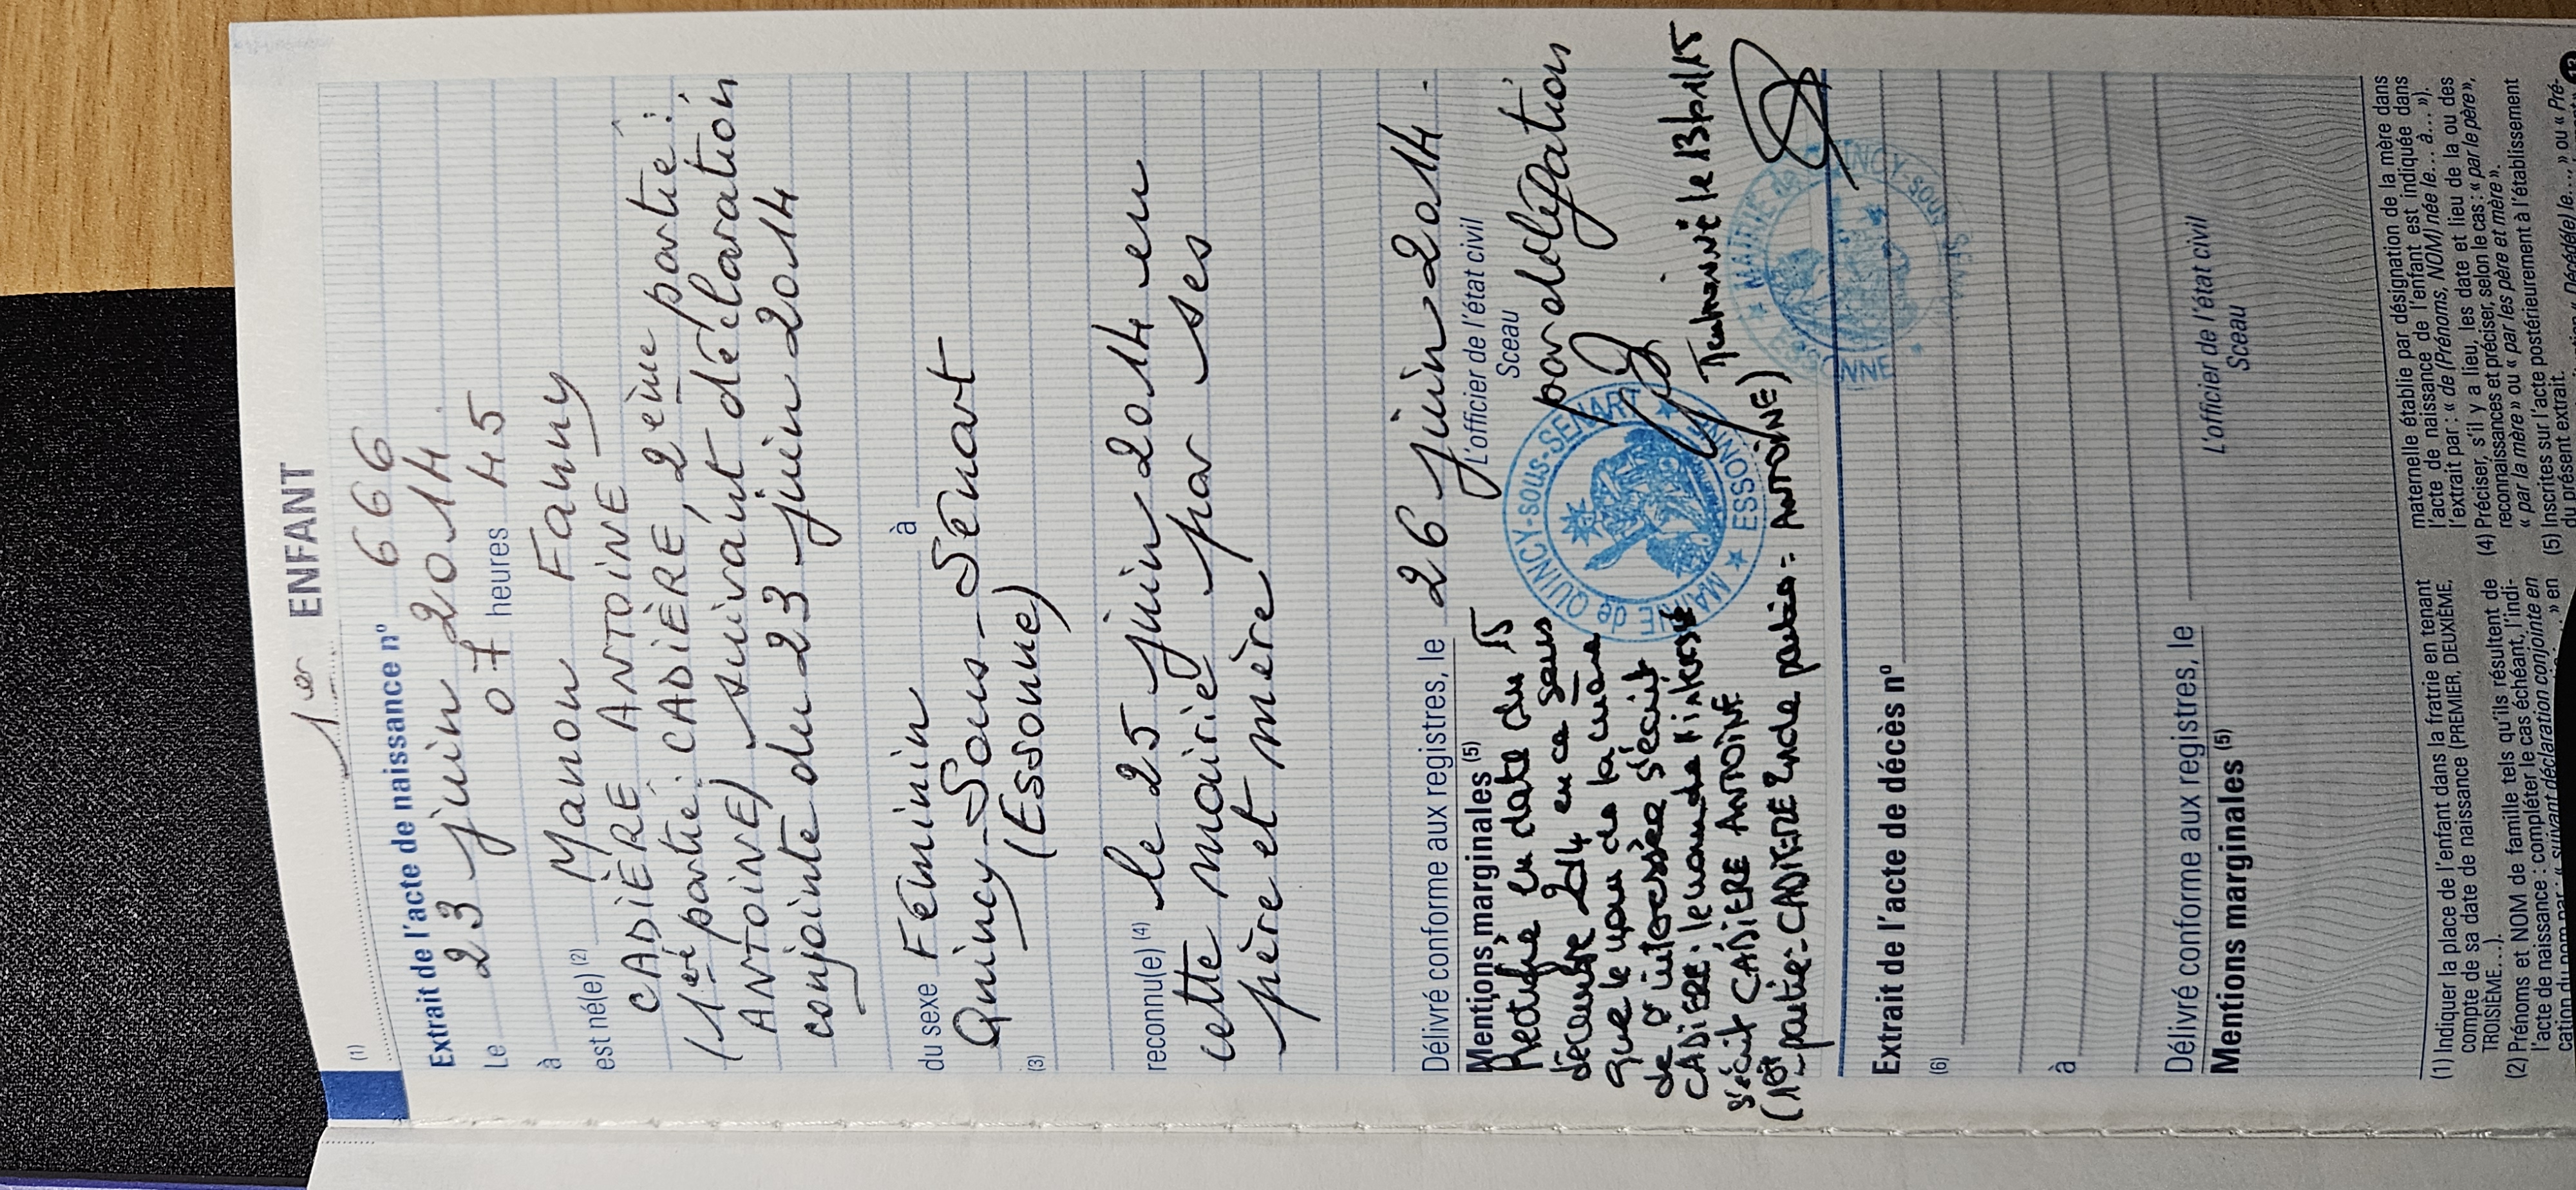 1er ENFANT
(1)
Extrait de l'acte de naissance nº 666
Le 23 juin 2014
à 07 heures 45
est né(e) (2) Manon Fanny
CADIÈRE ANTOINE
(1ère partie: CADIÈRE, 2ème partie:
ANTOINE) suivant déclaration
conjointe du 23 juin 2014
à
du sexe Féminin
Quincy-Sous-Sénart
(3) (Essonne)
reconnu(e) (4) le 25 juin 2014 en
cette mairie par ses
père et mère
Délivré conforme aux registres, le 26 juin 2014.
L'officier de l'état civil
Sceau
par délégation
MAIRIE de QUINCY-sous-SENART
★ ESSONNE ★
Mentions marginales (5)
Rectifié en date du 15
décembre 2014 en ce sens
que le nom de la mère
de l'intéressée s'écrit
CADIERE: le nom de l'intéressée
s'écrit CADIERE ANTOINE
(1ère partie: CADIERE 2nde partie: ANTOINE)
le 13
MAIRIE de QUINCY-sous-SENART
ESSONNE
Extrait de l'acte de décès nº
(6)
à
Délivré conforme aux registres, le
L'officier de l'état civil
Sceau
Mentions marginales (5)
(1) Indiquer la place de l'enfant dans la fratrie en tenant
compte de sa date de naissance (PREMIER, DEUXIÈME,
TROISIÈME...).
(2) Prénoms et NOM de famille tels qu'ils résultent de
l'acte de naissance : compléter le cas échéant, l'indi-
cation du nom par : « suivant déclaration conjointe en
» en
maternelle établie par désignation de la mère dans
l'acte de naissance de l'enfant est indiquée dans
l'extrait par : « de (Prénoms, NOM) née le... à... »).
(4) Préciser, s'il y a lieu, les date et lieu de la ou des
reconnaissances et préciser, selon le cas : « par le père »,
« par la mère » ou « par les père et mère ».
(5) Inscrites sur l'acte postérieurement à l'établissement
du présent extrait.
« Décédé(e) le... » ou « Pré-